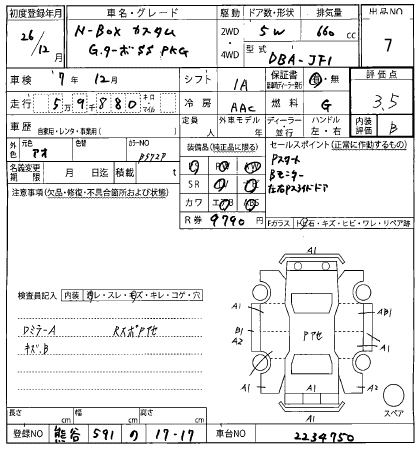 初度登録年月 車名・グレード 駆動 ドア数・形状 排気量 出品NO
26/12月 N-BOX カスタム 2WD 5W 660 cc 7
G.ターボSS PKG 4WD 型式 DBA-JF1
車検 7年 12月 シフト IA 保証書 有・無 評価点
走行 59,880 キロ・マイル 冷房 AAC 燃料 G 3.5
車歴 自家用・レンタ・事業用 定員 人 外車モデル 年 ディーラー・並行 ハンドル 左・右 内装評価 B
外色 元色 アオ 色替 カラーNO B572P 装備品(純正品に限る) セールスポイント(正常に作動するもの)
名義変更期限 月 日迄 積載 t
Pスタート
Bモニター
左右Pスライドドア
注意事項(欠品・修復・不具合箇所および状態)
SR
カワ
R券 9790円
Fガラス トビ石・キズ・ヒビ・ワレ・リペア跡
検査員記入 内装 汚レ・スレ・キズ・キレ・コゲ・穴
DミラーA RスポP他
キズ.B
A1
A1 AB1
B1 P他
A2 A1
A1 A2
A1
スペア
長さ cm 幅 cm 高さ cm
登録NO 熊谷 591 の 17-17 車台NO 2234750